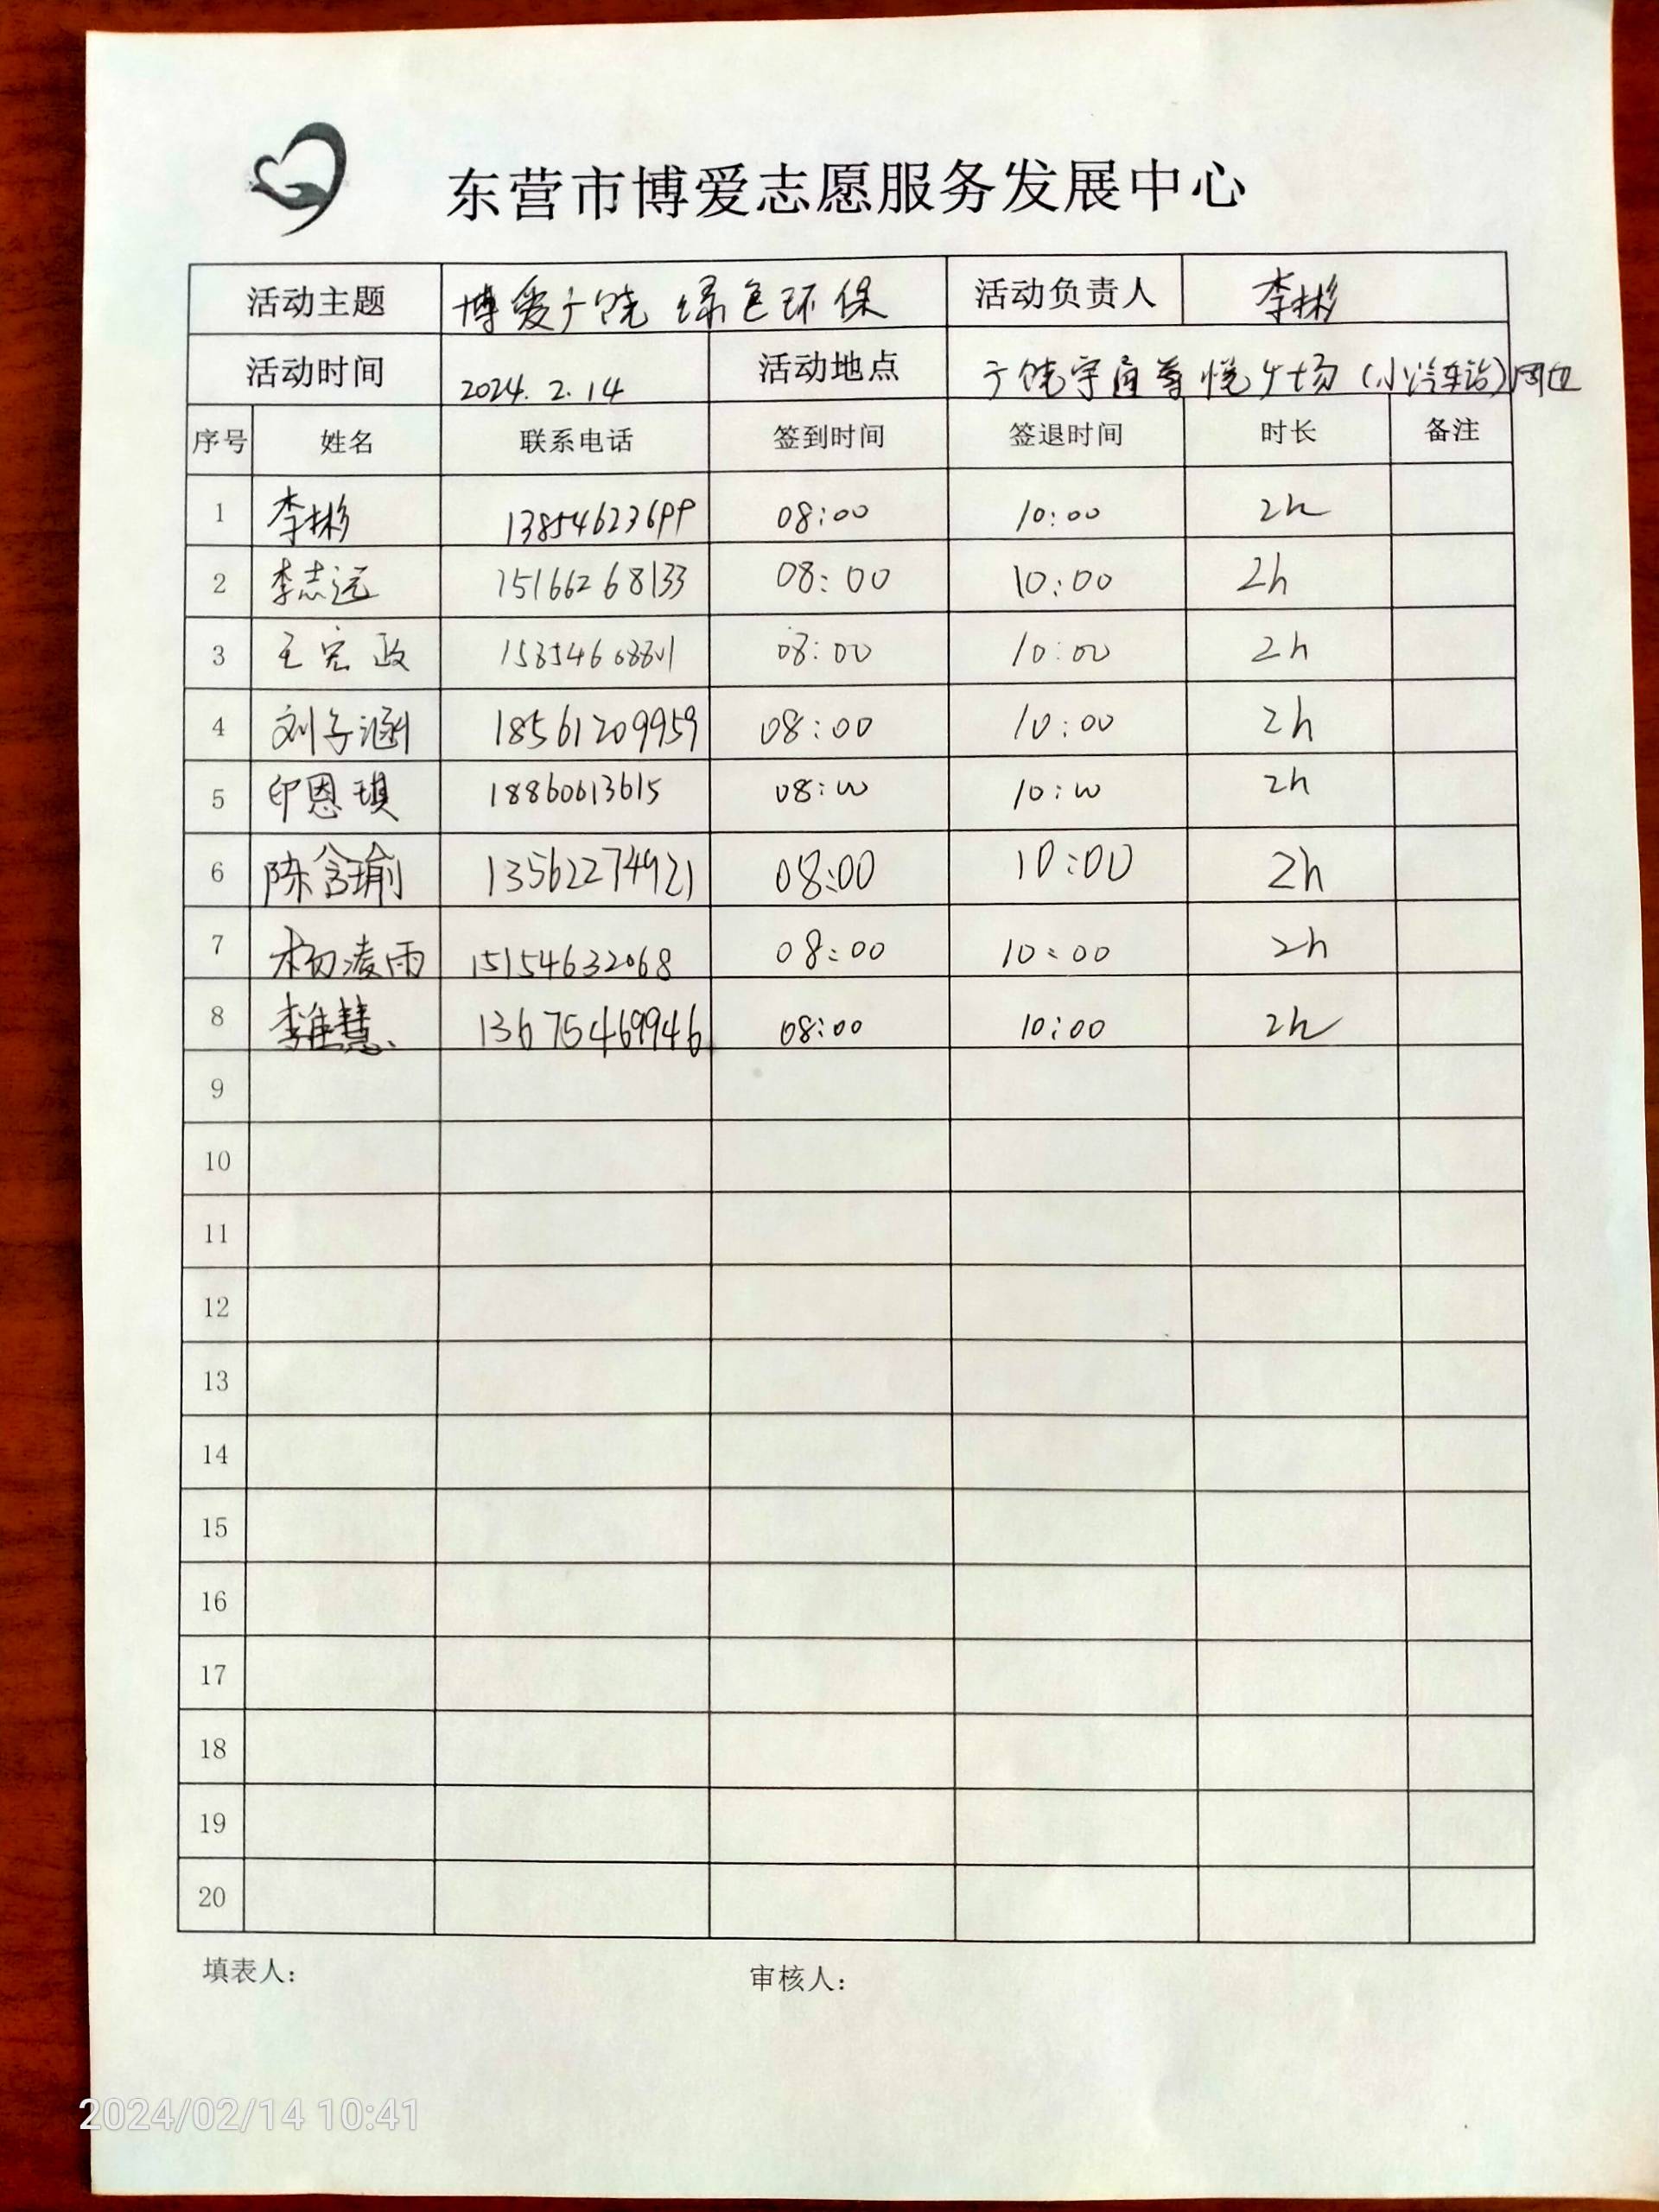 东营市博爱志愿服务发展中心
活动主题 博爱广饶 绿色环保 活动负责人 李彬
活动时间 2024.2.14 活动地点 广饶宇通尊悦广场(小汽车站)周边
序号 姓名 联系电话 签到时间 签退时间 时长 备注
1 李彬 13854623699 08:00 10:00 2h
2 李志远 15166268133 08:00 10:00 2h
3 王宏政 08:00 10:00 2h
4 刘子涵 18561209959 08:00 10:00 2h
5 印恩琪 18860613615 08:00 10:00 2h
6 陈含瑜 13562274921 08:00 10:00 2h
7 杨凌雨 15154632068 08:00 10:00 2h
8 李佳慧 13675469946 08:00 10:00 2h
9
10
11
12
13
14
15
16
17
18
19
20
填表人: 审核人:
2024/02/14 10:41